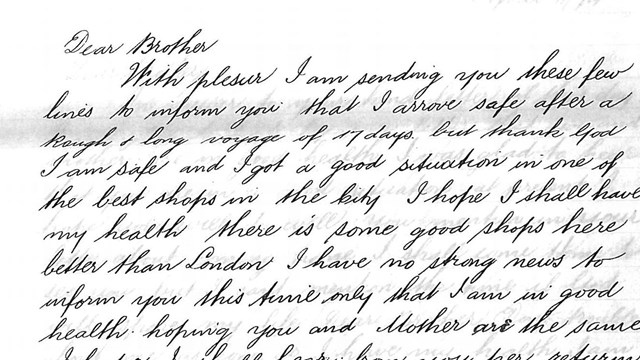 Dear Brother
With plesur I am sending you these few
lines to inform you that I arrove safe after a
Rough & long voyage of 17 days. but thank God
I am safe and I got a good situation in one of
the best shops in the City I hope I shall have
my health there is some good shops here
better than London I have no strong news to
inform you this time only that I am in good
health. hoping you and Mother are the same